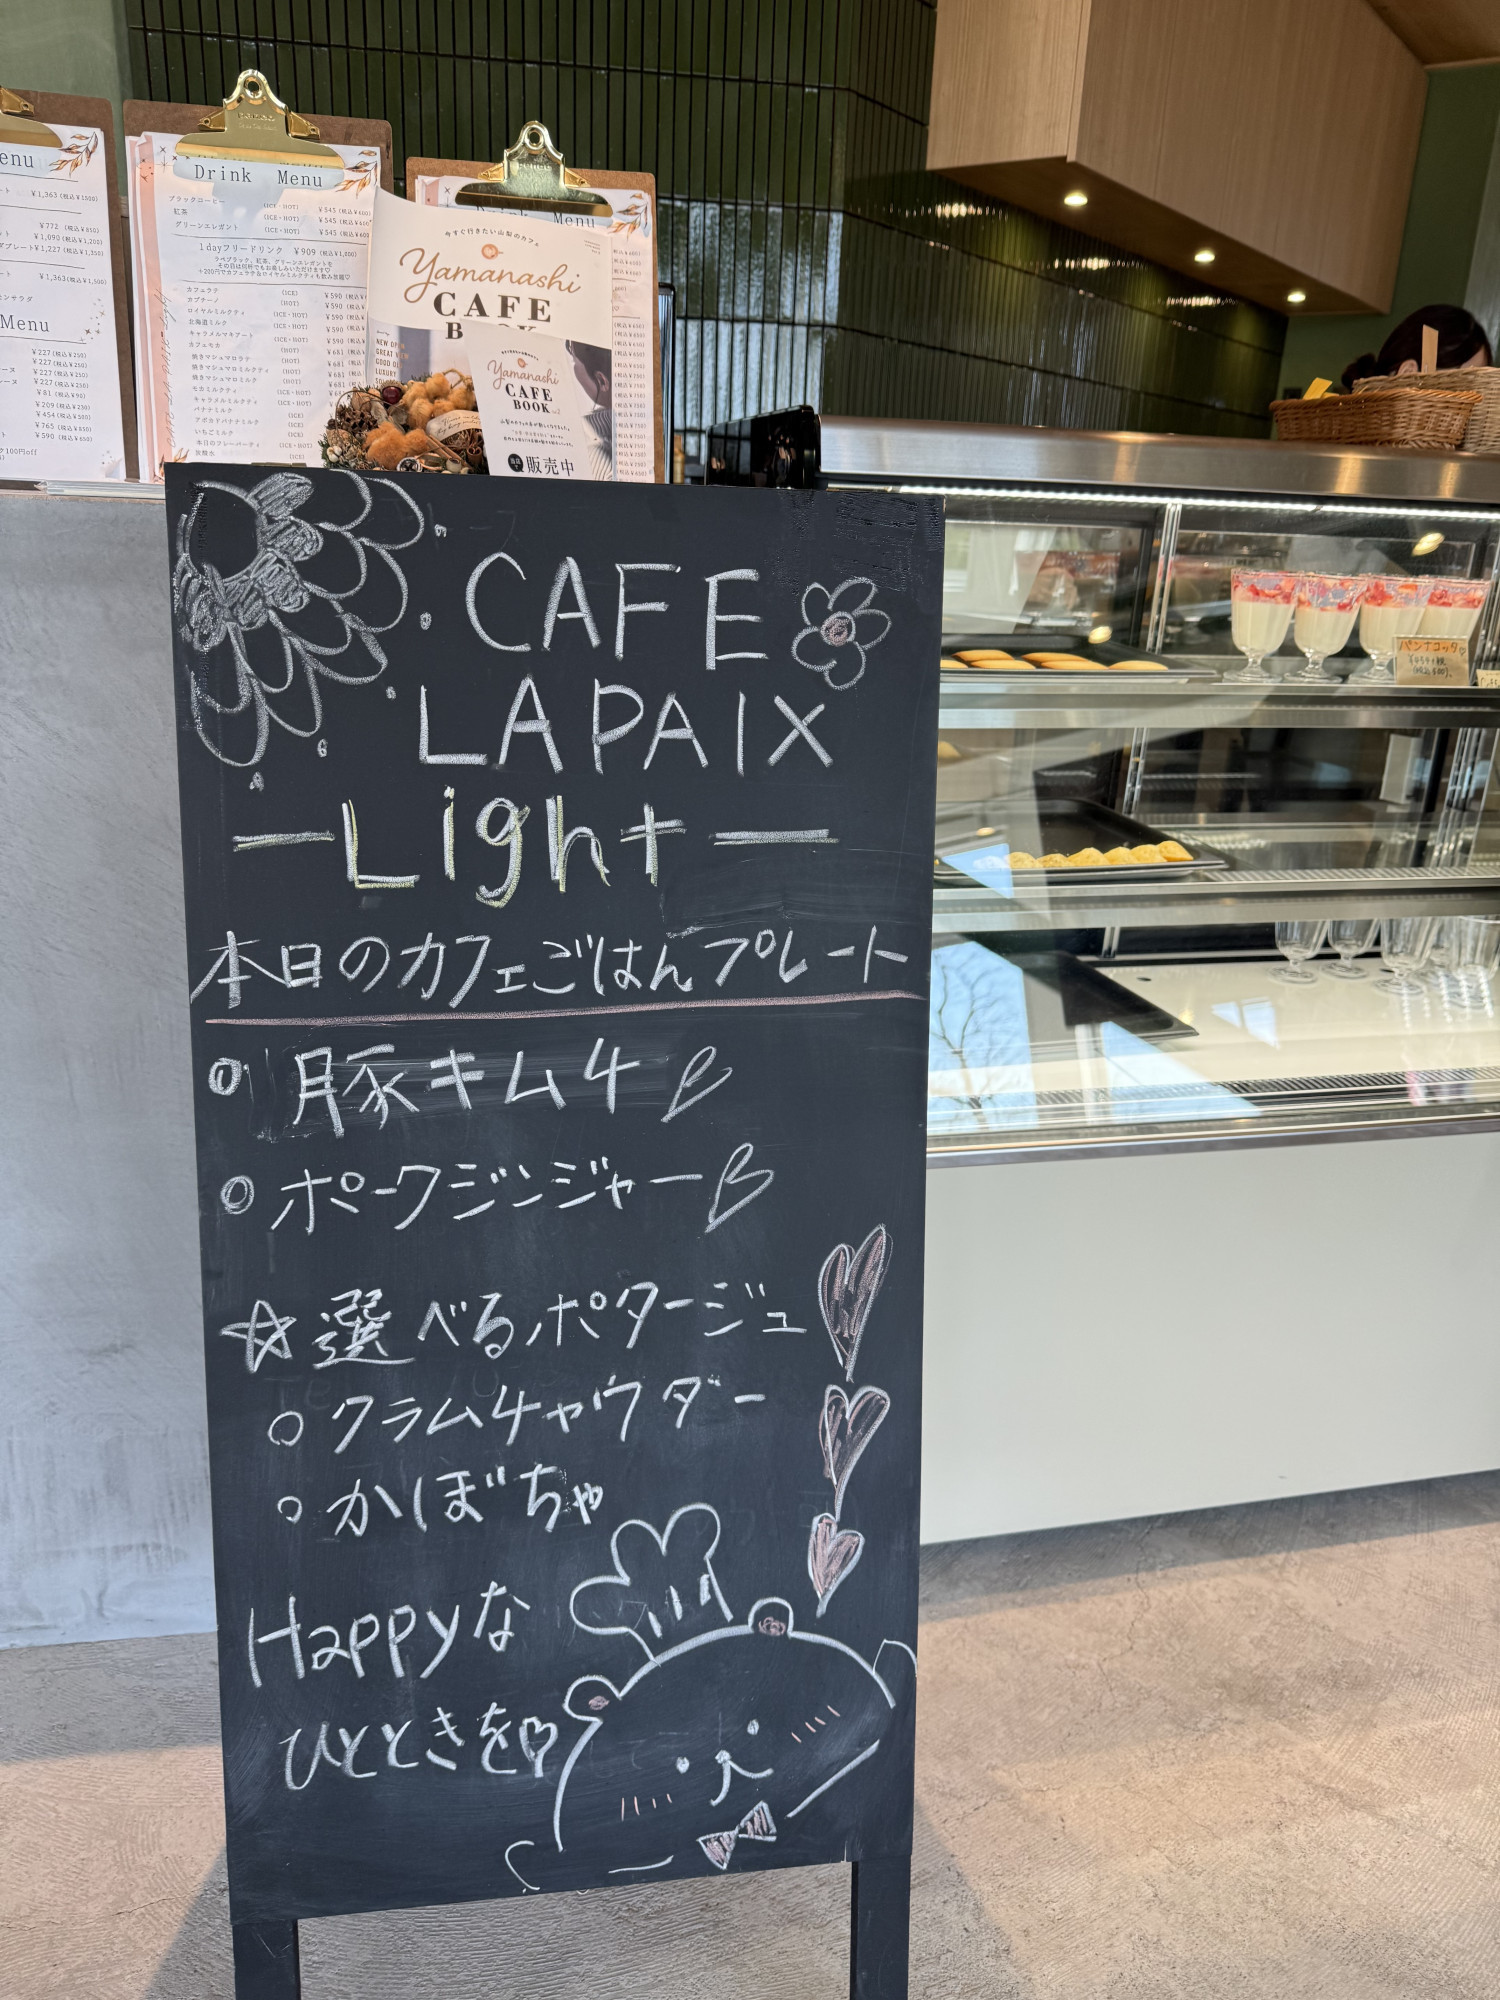 Drink Menu
ブラックコーヒー (ICE・HOT) ¥545 (税込¥600)
紅茶 (ICE・HOT) ¥545 (税込¥600)
グリーンエレガント (ICE・HOT) ¥545 (税込¥600)
1dayフリードリンク ¥909 (税込¥1,000)
カフェラテ (ICE) ¥590
カプチーノ (HOT) ¥590
ロイヤルミルクティ (ICE・HOT) ¥590
北海道ミルク (ICE・HOT) ¥590
キャラメルマキアート (ICE・HOT) ¥590
カフェモカ (HOT) ¥681
焼きマシュマロラテ (HOT) ¥681
焼きマシュマロミルクティ (HOT) ¥681
焼きマシュマロミルク (HOT)
モカミルクティ (ICE・HOT)
キャラメルミルクティ (ICE・HOT)
バナナミルク (ICE)
アボカドバナナミルク (ICE)
いちごミルク (ICE)
本日のフレーバーティ (ICE・HOT)
炭酸水 (ICE)
Drink Menu
今すぐ行きたい山梨のカフェ
Yamanashi
CAFE
Yamanashi
CAFE
BOOK
販売中
enu
¥1,363(税込¥1,500)
¥772 (税込¥850)
¥1,090(税込¥1,200)
プレート¥1,227(税込¥1,350)
¥1,363(税込¥1,500)
Menu
¥227(税込¥250)
¥227(税込¥250)
¥227(税込¥250)
¥81(税込¥90)
¥209(税込¥230)
¥454(税込¥500)
¥765(税込¥850)
¥590(税込¥650)
100円off
パンナコッタ
CAFE
LAPAIX
—Light—
本日のカフェごはんプレート
◎ 豚キムチ
◎ ポークジンジャー
☆ 選べるポタージュ
○ クラムチャウダー
○ かぼちゃ
Happyな
ひとときを♡